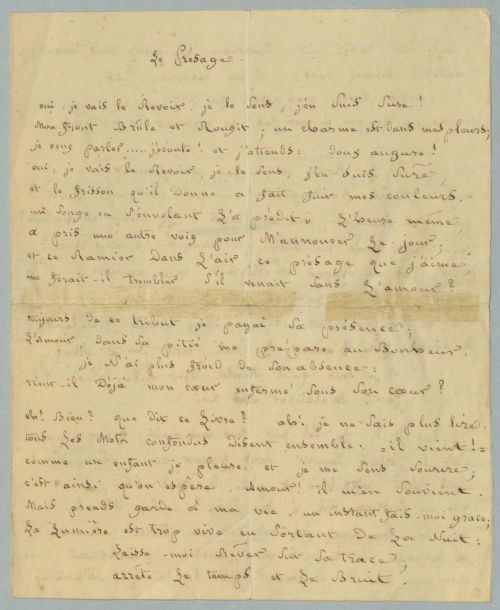 Le Présage.
oui, je vais le Revoir, je le sens, j'en suis sure!
Mon front Brûle et Rougit; un charme est dans mes pleurs;
je veux parler.... j'écoute! et j'attends: doux augure!
oui, je vais le Revoir, je le sens, j'en suis sure,
et le frisson qu'il donne a fait fuir mes couleurs.
un songe en s'envolant l'a prédit; l'heure même
a pris une autre voix pour m'annoncer le jour;
et ce Ramier dans l'air ce présage que j'aime,
me ferait-il trembler s'il venait sans l'amour?
toujours de ce tribut je payai sa présence;
l'amour dans sa pitié me prépare au Bonheur.
je n'ai plus froid de son absence:
tient-il Déjà mon cœur enfermé sous son cœur?
eh! Bien? que dit ce Livre? ah! je ne sais plus lire.
tous les Mots confondus disent ensemble: =il vient!=
comme un enfant je pleure et je me sens sourire;
c'est ainsi qu'on espère, Amour! il m'en souvient.
Mais prends garde à ma vie, un instant fais-moi grace;
La Lumière est trop vive en sortant de La Nuit:
Laisse-moi Rêver sur sa trace,
arrête Le temps et Le Bruit!